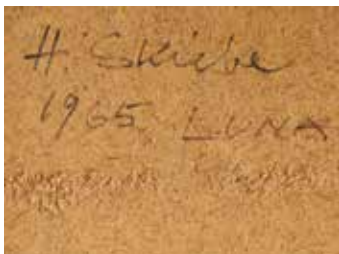 H. Skicbe
1965 LUNA